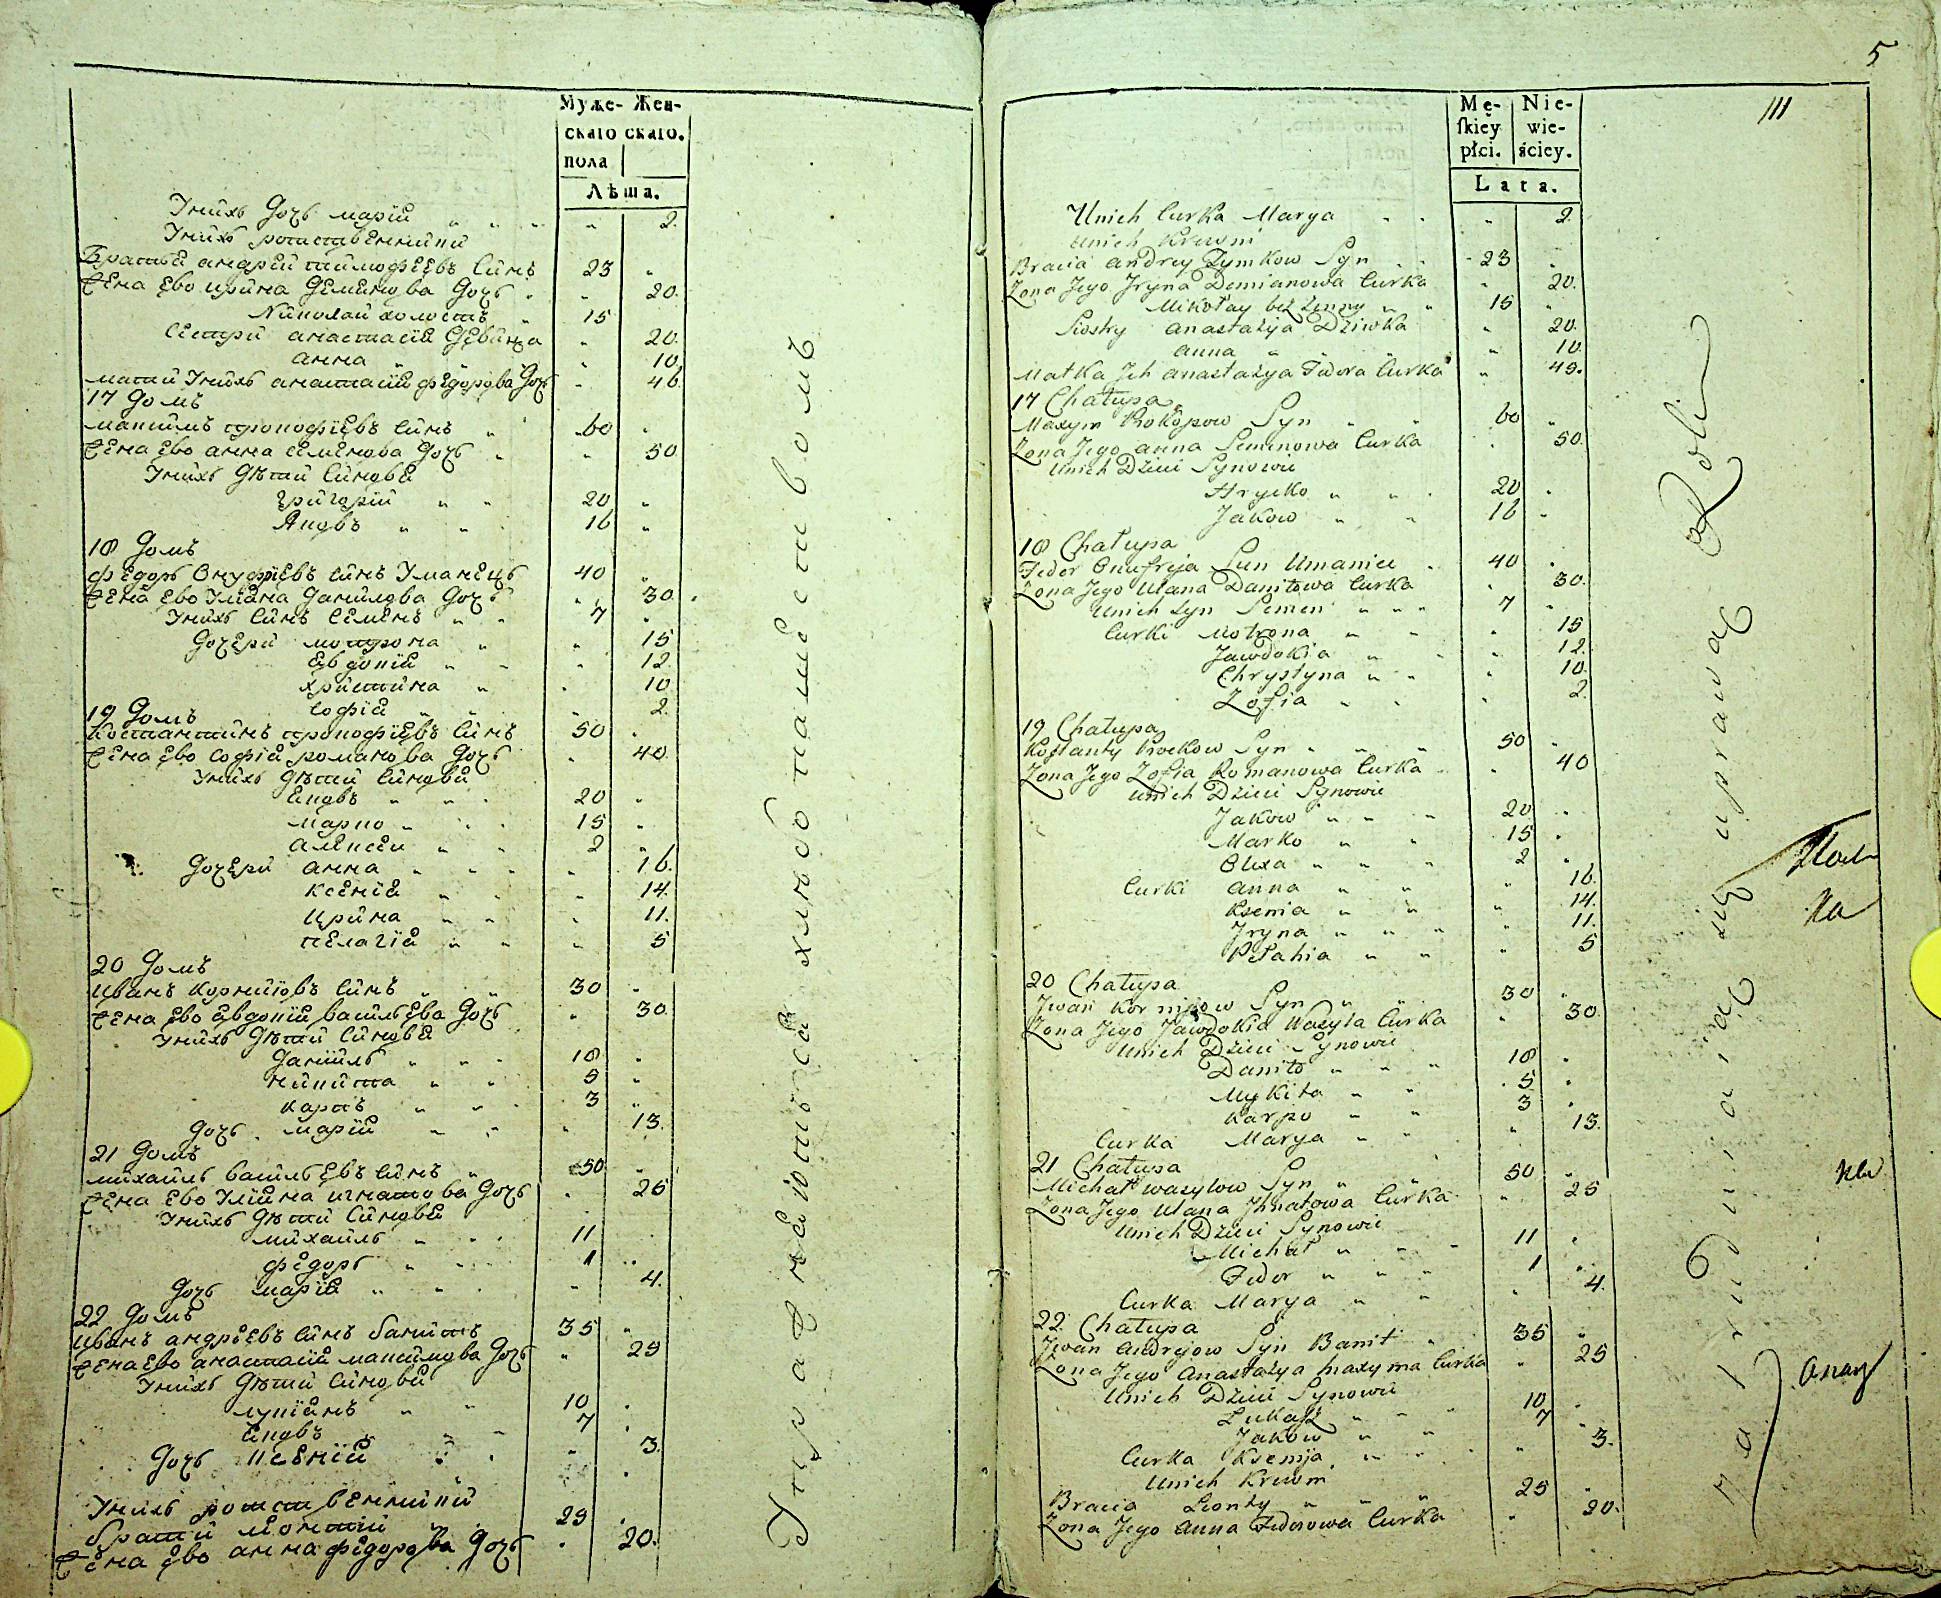 Муже- Жен-
скаго скаго.
пола
Лѣта.
Унихъ дочь марія 2.
Унихъ родственники
Братъя андрей тимофѣевъ синъ 23
Жена Ево ирина деминова дочь 20.
Николай холостъ 15
Сестри анастасія девица 20.
анна 10.
мати Унихъ анастасія федорова дочь 46
17 домъ
максимъ прокофіевъ синъ 60
Жена Ево анна семенова дочь 50
Унихъ дѣти синовя
григорій 20
Яковъ 16
18 домъ
федоръ Онуфріевъ синъ Уманецъ 40
Жена Ево Уліяна данилова дочь 30.
Унихъ синъ семенъ 7
дочери мотрона 15
Евдокія 12.
христина 10
софія 2.
19 домъ
Костантинъ прокофіевъ синъ 50
Жена Ево софія романова дочь 40.
Унихъ дѣти синовя
Яковъ 20
марко 15
алексѣй 2
дочери анна 16.
ксенія 14.
ирина 11.
пелагія 5
20 домъ
иванъ Корніювъ синъ 30
Жена Ево Евдокія васильева дочь 30.
Унихъ дѣти синовя
даніилъ 10
никита 5
карпъ 3
дочь марія 13.
21 домъ
михаилъ васильевъ синъ 50
Жена Ево Уліяна игнатова дочь 25
Унихъ дѣти синовя
михаилъ 11
федоръ 1
дочь марія 4.
22 домъ
иванъ андрѣевъ синъ банитъ 35
Жена Ево анастасія максимова дочь 25
Унихъ дѣти синовя
лукіянъ 10
Яковъ 7
дочь ксенія 3.
Унихъ родственники
братъ леонтій 25
Жена Ево анна федорова дочь 20.
Упражняются хлѣбопашеством
5
111
Mę- Nie-
ſkiéy wie-
płci. ściey.
Lata.
Unich Curka Marya 2.
Unich Krewni
Bracia Andrey Tymkow Syn 23
Zona Jego Jryna Demianowa Curka 20.
Mikołay bez Zenny 15
Siostry Anastazija Dziwka 20.
Anna 10.
Matka Jch Anastazya Fedora Curka 49.
17 Chałupa
Maxym Prokopow Syn 60
Zona Jego Anna Semenowa Curka 50.
Unich Dzieci Synowie
Hryćko 20
Jakow 16
18 Chałupa
Fedor Onufreja Sun Umaniec 40
Zona Jego Ulana Daniłowa Curka 30.
Unich Syn Semen 7
Curki Motrona 15
Jawdokia 12.
Chrystyna 10.
Zofia 2.
19 Chałupa
Koſtanty Prockow Syn 50
Zona Jego Zofia Romanowa Curka 40
Unich Dzieci Synowie
Jakow 20
Marko 15
Olexa 2
Curki Anna 16.
Ksenia 14.
Jryna 11.
Pełahia 5
20 Chałupa
Jwan Kornijow Syn 30
Zona Jego Jawdokia Wasyla Curka 30.
Unich Dzieci Synowie
Daniło 10
Mykita 5
Karpo 3
Curka Marya 13.
21 Chałupa
Michał Wasylow Syn 50
Zona Jego Ulana Jhnatowa Curka 25
Unich Dzieci Synowie
Michał 11
Fedor 1
Curka Marya 4.
22 Chałupa
Jwan Andrejow Syn Banit 35
Zona Jego Anastazya Maxyma Curka 25
Unich Dzieci Synowie
Łukaſz 10
Jakow 7
Curka Ksenija 3.
Unich Krewni
Bracia Leonty 25
Zona Jego Anna Fedorowa Curka 20.
Zatrudniaią się uprawą Roli